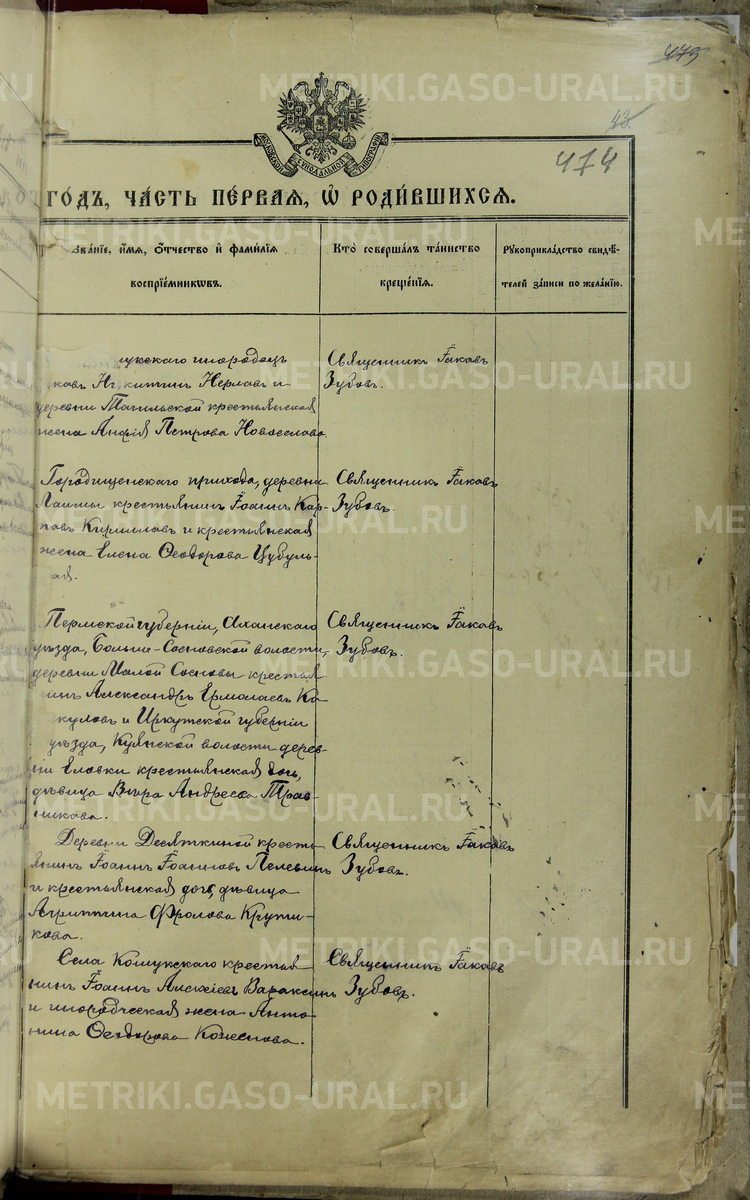 METRIKI.GASO-URAL.RU
43
474
МОСКОВСКОЙ СУНОДАЛЬНОЙ ТИПОГРАФІИ
ГО́ДЪ, ЧА́СТЬ ПЕ́РВАЯ, Ѡ҆ РОДИ́ВШИХСѦ.
Зва́нїе, и҆́мѧ, ѻ҆́тчество и҆ фами́лїѧ
воспрїе́мникѡвъ.
Кто̀ соверша́лъ та́инство
креще́нїѧ.
Рꙋкоприкла́дство свидѣ́-
телей за́писи по жела́нїю.
укскаго инородецъ
деревни Тагильской крестьянская
жена Анфія Петрова Новоселова
Священникъ Іаковъ
Зубовъ.
Городищенскаго прихода, деревни
крестьянинъ Іоаннъ Кар-
повъ Кирилловъ и крестьянская
жена Елена Ѳеодорова Цубуль-
ая.
Священникъ Іаковъ
Зубовъ.
Пермской губерніи, Оханскаго
уѣзда, Больше-Сосновской волости,
деревни Малой Сосновы крестья
инъ Александръ Ермолаевъ Ка
куловъ и Иркутской губерніи
уѣзда, Куянской волости дерев-
ни Еловки крестьянская дочь,
дѣвица Вѣра Андреева Трав-
никова.
Священникъ Іаковъ
Зубовъ.
Деревни Десяткиной кресть-
янинъ Іоаннъ Іоанновъ Пелевинъ
и крестьянская дочь, дѣвица
Агриппина Фролова Крути-
кова.
Священникъ Іаковъ
Зубовъ.
Села Кошукскаго крестья-
нинъ Іоаннъ Алексіевъ Вараксинъ
и инородческая жена Анто-
нина Ѳеодорова Коженова.
Священникъ Іаковъ
Зубовъ.